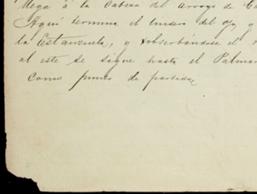 llega á la Cabeza del Arroyo de
Aquí termina el curso del
la Estanzuela, y volviéndose el
al este se sigue hasta el Palmar
como punto de partida,